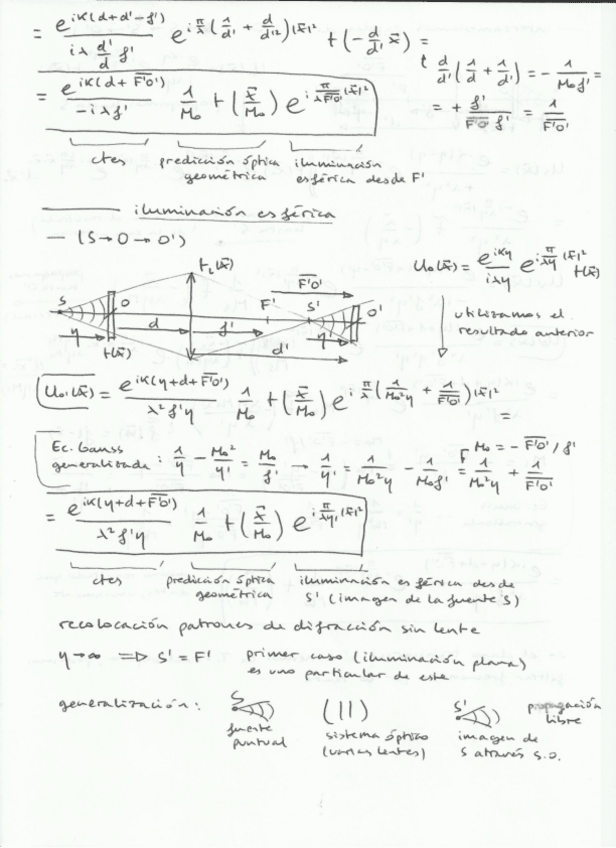 = e^{ik(d+d'-f')} / (iλ (d'/d) f') e^{i (π/λ) (1/d' + d/d'²) |x̄|²} t(-(d/d') x̄) =
= e^{ik(d+F'O')} / (-iλf') 1/M₀ t(x̄/M₀) e^{i (π/(λF'O')) |x̄|²}
d/d' (1/d + 1/d') = -1/(M₀f') =
= + f'/(F'O' f') = 1/F'O'
ctes predicción óptica geométrica iluminación esférica desde F'
iluminación esférica
— (S→O→O')
t_L(x̄) F'O'
S O F' S' O'
η d f' η'
t(x̄) d'
U₀(x̄) = e^{ikη}/(iλη) e^{i (π/(λη)) |x̄|²} t(x̄)
utilizamos el
resultado anterior
U₀'(x̄) = e^{ik(η+d+F'O')} / (λ²f'η) 1/M₀ t(x̄/M₀) e^{i (π/λ) (1/(M₀²η) + 1/F'O') |x̄|²} =
Ec. Gauss
generalizada: 1/η - M₀²/η' = M₀/f' → 1/η' = 1/(M₀²η) - 1/(M₀f') = 1/(M₀²η) + 1/F'O'
M₀ = - F'O'/f'
= e^{ik(η+d+F'O')} / (λ²f'η) 1/M₀ t(x̄/M₀) e^{i (π/(λη')) |x̄|²}
ctes predicción óptica geométrica iluminación esférica desde
S' (imagen de la fuente S)
recolocación patrones de difracción sin lente
η→∞ ⇒ S' = F' primer caso (iluminación plana)
es uno particular de este
generalización: S S' propagación libre
fuente puntual sistema óptico (varias lentes) imagen de S a través S.O.